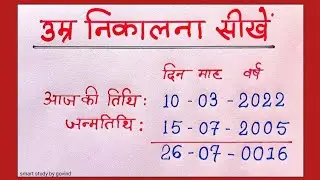 उम्र निकालना सीखें
दिन माह वर्ष
आज की तिथि: 10-03-2022
जन्मतिथि: 15-07-2005
26-07-0016
smart study by govind